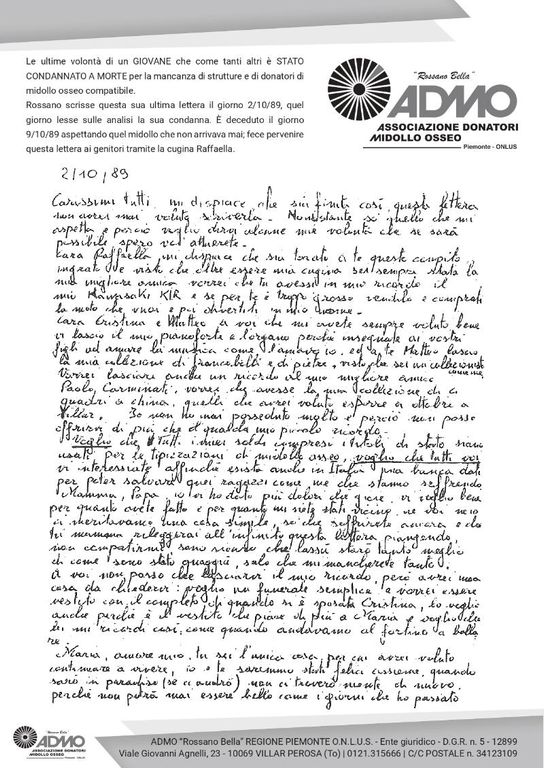 Le ultime volontà di un GIOVANE che come tanti altri è STATO
CONDANNATO A MORTE per la mancanza di strutture e di donatori di
midollo osseo compatibile.
Rossano scrisse questa sua ultima lettera il giorno 2/10/89, quel
giorno lesse sulle analisi la sua condanna. È deceduto il giorno
9/10/89 aspettando quel midollo che non arrivava mai; fece pervenire
questa lettera ai genitori tramite la cugina Raffaella.
"Rossano Bella"
ADMO
ASSOCIAZIONE DONATORI
MIDOLLO OSSEO
Piemonte - ONLUS
2/10/89
Carissimi tutti, mi dispiace che sia finita così, questa lettera
non avrei mai voluto scriverla. Nonostante so quello che mi
aspetta e perciò voglio dirvi alcune mie volontà che se sarà
possibile spero voi
Cara Raffaella mi dispiace che sia toccato a te questo compito
ingrato e visto che oltre essere mia cugina sei sempre stata la
mia migliore amica vorrei che tu avessi in mio ricordo il
mio Kawasaki KLR e se per te è troppo grosso vendilo e comprati
la moto che vuoi e poi divertiti in mio onore.
Cara Cristina e Matteo a voi che mi avete sempre voluto bene
vi lascio il mio pianoforte e l'organo perché insegnate ai vostri
figli ad amare la musica come l'amavo io. ed a te Matteo lascio
la mia collezione di francobolli e di pietre, visto che sei un collezionista
come me.
Vorrei lasciare anche un ricordo al mio migliore amico
Paolo Carminati, vorrei che avesse la mia collezione di
quadri a china, quelli che avrei voluto esporre a ottobre a
Villar. Io non ho mai posseduto molto e perciò non posso
offrirvi di più che qualche mio piccolo ricordo.
Voglio che tutti i miei soldi compresi i titoli di stato siano
usati per le tipizzazioni di midollo osseo, voglio che tutti voi
vi interessiate affinché esista anche in Italia una banca dati
per poter salvare quei ragazzi come me che stanno soffrendo
Mamma, Papà, io vi ho dato più dolori che gioie. vi voglio bene
per quanto avete fatto e per quanto mi siete stati vicino. ne voi ne io
ci meritavamo una cosa simile, so che soffrirete ancora e che
tu mamma rileggerai all'infinito questa lettera piangendo,
non compatirmi sono sicuro che lassù starò tanto meglio
di come sono stato quaggiù, solo che mi mancherete tanto.
A voi non posso che lasciarvi il mio ricordo, però avrei una
cosa da chiedervi: voglio un funerale semplice e vorrei essere
vestito con il completo di quando si è sposata Cristina, lo voglio
anche perché è il vestito che piace di più a Maria e voglio che
lei mi ricordi così, come quando andavamo al fortino a balla
re.
Maria, amore mio. tu sei l'unica cosa per cui avrei voluto
continuare a vivere, io e te saremmo stati felici assieme, quando
sarò in paradiso (se ci andrò) non ci troverò niente di nuovo.
perché non potrà mai essere bello come i giorni che ho passato
"Rossano Bella"
ADMO
ASSOCIAZIONE DONATORI
MIDOLLO OSSEO
Piemonte - ONLUS
ADMO "Rossano Bella" REGIONE PIEMONTE O.N.L.U.S. - Ente giuridico - D.G.R. n. 5 - 12899
Viale Giovanni Agnelli, 23 - 10069 VILLAR PEROSA (To) | 0121.315666 | C/C POSTALE n. 34123109